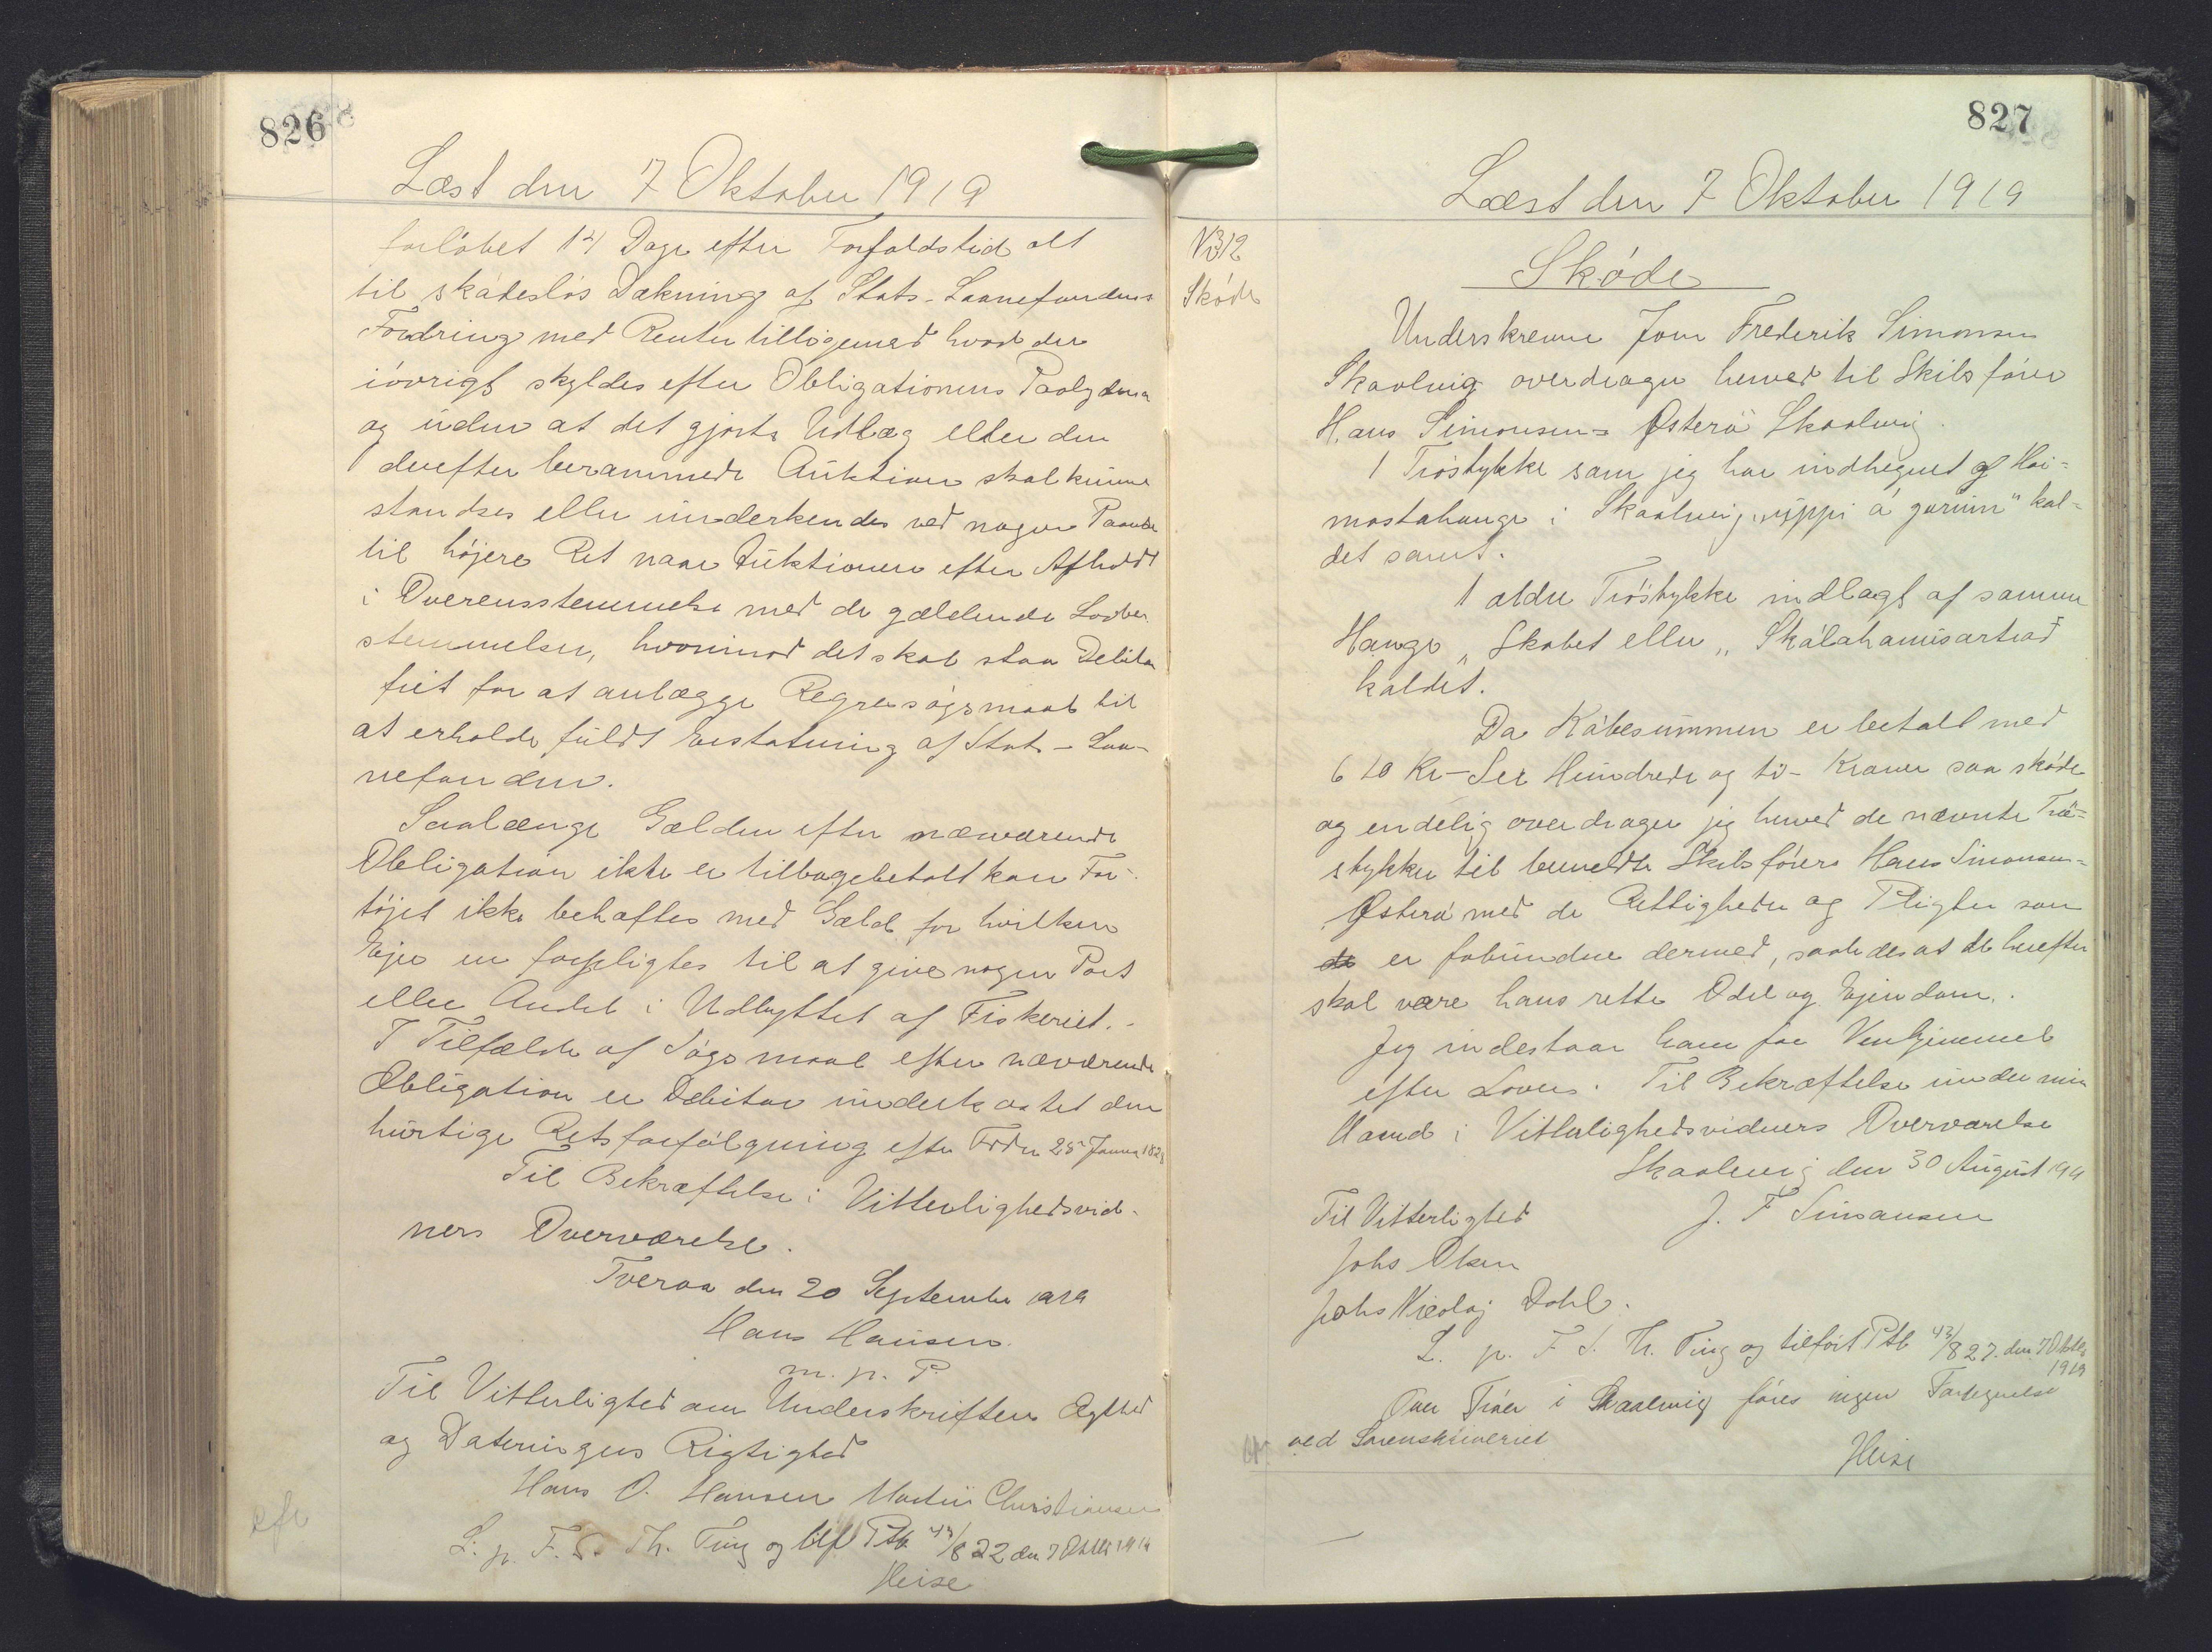 826
Læst den 7 Oktober 1919
forløbet 14 Dage efter Forfaldstid alt
til skadesløs Dækning af Stats-Laanefondens
Fordring med Renter tilligemed hvad der
iøvrigt skyldes efter Obligationens Paalydende
og uden at det gjorte Udlæg eller den
derefter berammede Auktion skal kunne
standses eller underkendes ved nogen Paanke
til højere Ret naar Auktionen efter Afholdt
i Overensstemmelse med de gældende Lovbe
stemmelser, hvorimod det skal staa Debitor
frit for at anlægge Regressøgsmaal til
at erholde fuldt Erstatning af Stats-Laa-
nefonden.
Saalænge Gælden efter nærværende
Obligation ikke er tilbagebetalt kan Far-
tøjet ikke behæftes med Gæld for hvilken
Ejer en forpligtes til at give nogen Part
eller Andel i Udbyttet af Fiskeriet.-
I Tilfælde af Søgsmaal efter nærværende
Obligation er Debitor underkastet den
hurtige Retsforfølgning efter Frdn 25 Januar 1828
Til Bekræftelse i Vitterlighedsvid-
ners Overværelse.
Tveraa den 20 September 1919
Hans Hansen
m. p. P.
Til Vitterlighed om Underskriftens Ægthed
og Dateringens Rigtighed
Hans O. Hansen Martin Christiansen
L. p. F. S. Th. Ting og tilf Ptb 43/822 den 7 Oktbr 1919
Heise
827
Læst den 7 Oktober 1919
N 312
Skøde
Skøde
Underskrevne Jom Frederik Simonsen
Skaalevig overdrager herved til Skibsfører
Hans Simonsen = Østerø Skaalevig.
1 Trøstykke som jeg har indhegnet af Hei=
mastahauge i Skaalevig „uppi á gørum" kal=
det samt.
1 ældre Trøstykke indlagt af samme
Hauge „Skabet eller „Skálahamisartrad
kaldet.
Da Købesummen er betalt med
610 Kr - Sex Hundrede og ti - Kroner saa skøde
og endelig overdrager jeg herved de nævnte Trø=
stykker til bemeldte Skibsfører Hans Simonsen =
Østerø med de Rettigheder og Pligter som
er forbundne dermed, saaledes at de herefter
skal være hans rette Odel og Ejendom.
Jeg indestaar ham for Venhjemmel
efter Loven. Til Bekræftelse under min
Haand i Vitterlighedsvidners Overværelse
Skaalevig den 30 August 1919
Til Vitterlighed J. F Simonsen
Johs Olsen
Johs Nicolaj Dahl.
L. p. F. S. Th. Ting og tilført Ptb 43/827. den 7 Oktbr
1919
Over Trøer i Skaalevig føres ingen Fortegnelse
ved Sorenskriveriet
Heise